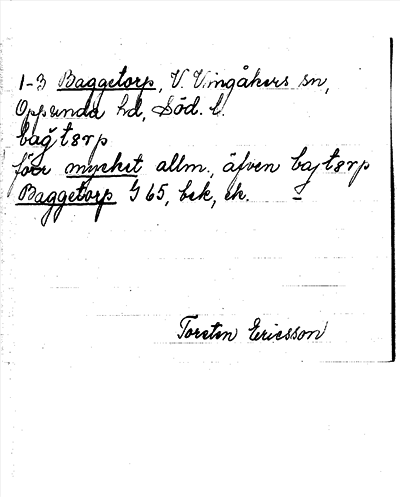 1-3 Baggetorp, V. Vingåkers sn,
Oppunda hd, Söd. l.
bağtɵrp
förr mycket allm., äfven bajtɵrp
Baggetorp J 65, bek, ek.
Torsten Ericsson